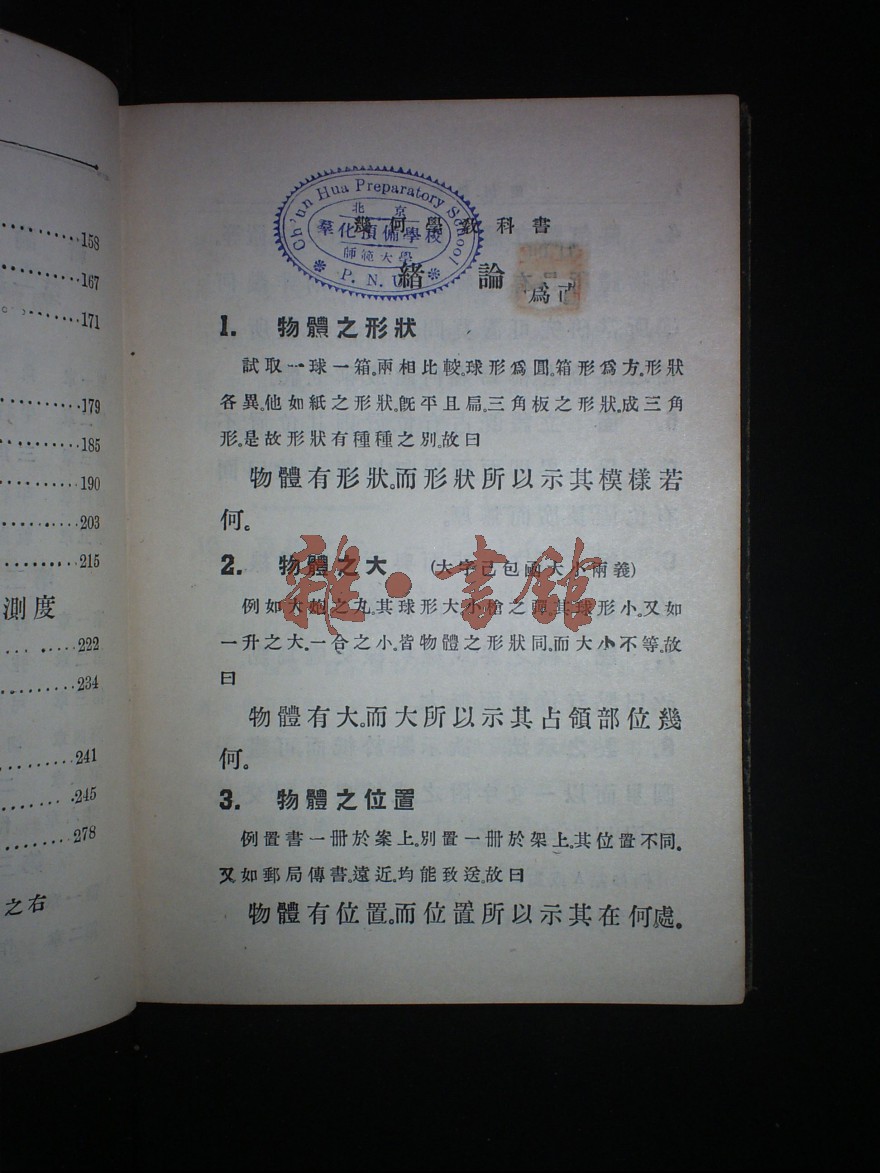 158
167
171
179
185
190
203
215
測度
222
234
241
245
278
之右
Ch'un Hua Preparatory School
北京
羣化預備學校
師範大學
P. N. U.
幾何學敎科書
緒論
1. 物體之形狀
試取一球一箱。兩相比較。球形爲圓。箱形爲方。形狀
各異。他如紙之形狀。旣平且扁。三角板之形狀。成三角
形。是故形狀有種種之別。故曰
物體有形狀。而形狀所以示其模樣若
何。
2. 物體之大 (大字已包國大小兩義)
例如大炮之丸。其球形大。小槍之彈。其球形小。又如
一升之大。一合之小。皆物體之形狀同。而大小不等。故
曰
物體有大。而大所以示其占領部位幾
何。
3. 物體之位置
例置書一冊於案上。別置一冊於架上。其位置不同。
又如郵局傳書。遠近。均能致送。故曰
物體有位置。而位置所以示其在何處。
雜·書館